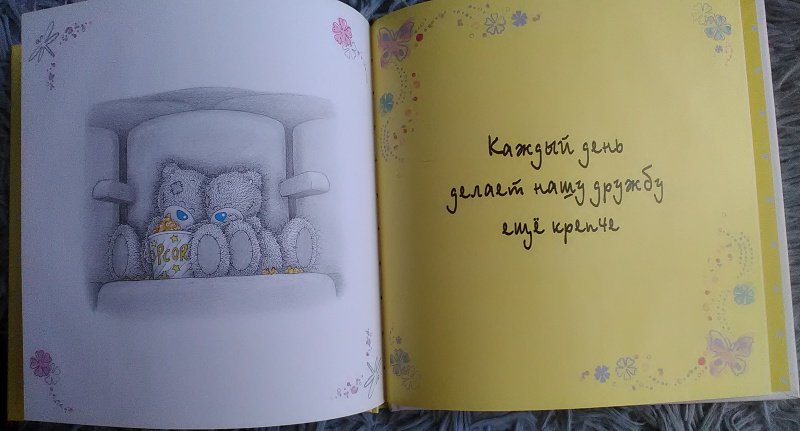 PCOR
Каждый день
делает нашу дружбу
ещё крепче